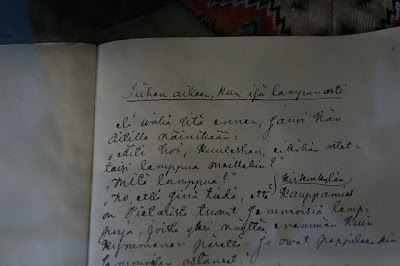 Siihen aikaan, kun isä lampun osti
eli vähä sitä ennen, sanoi hän
äidille näinikään:
„Äiti hoi, kuuleshan, eiköhän ostet-
taisi lamppua meillekin?"
„Mitä lamppua?"
„No etkö sinä tiedä, että kirkonkylän kauppamies
on Pietarista tuonut semmoisia lamp-
puja, joista yksi näyttää enemmän kuin
kymmenen pärettä. – Jo ovat pappilaankin
semmoisen ostaneet."